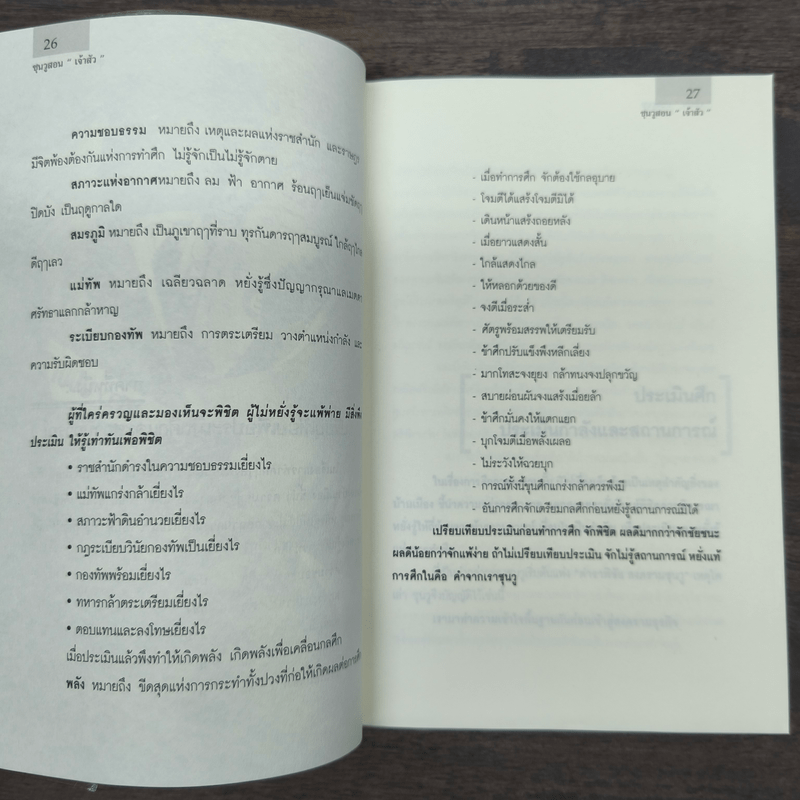 26
ซุนวูสอน " เจ้าสัว "
ความชอบธรรม หมายถึง เหตุและผลแห่งราชสำนัก และราษฎร
มีจิตพ้องต้องกันแห่งการทำศึก ไม่รู้จักเป็นไม่รู้จักตาย
สภาวะแห่งอากาศหมายถึง ลม ฟ้า อากาศ ร้อนฤๅเย็นแจ่มชัดฤๅ
ปิดบัง เป็นฤดูกาลใด
สมรภูมิ หมายถึง เป็นภูเขาฤๅที่ราบ ทุรกันดารฤๅสมบูรณ์ ใกล้ฤๅไกล
ดีฤๅเลว
แม่ทัพ หมายถึง เฉลียวฉลาด หยั่งรู้ซึ่งปัญญากรุณาแลเมตตา
ศรัทธาแลกกล้าหาญ
ระเบียบกองทัพ หมายถึง การตระเตรียม วางตำแหน่งกำลัง และ
ความรับผิดชอบ
ผู้ที่ใคร่ครวญและมองเห็นจะพิชิต ผู้ไม่หยั่งรู้จะแพ้พ่าย มีสิ่งพึง
ประเมิน ให้รู้เท่าทันเพื่อพิชิต
• ราชสำนักดำรงในความชอบธรรมเยี่ยงไร
• แม่ทัพแกร่งกล้าเยี่ยงไร
• สภาวะฟ้าดินอำนวยเยี่ยงไร
• กฎระเบียบวินัยกองทัพเป็นเยี่ยงไร
• กองทัพพร้อมเยี่ยงไร
• ทหารกล้าตระเตรียมเยี่ยงไร
• ตอบแทนและลงโทษเยี่ยงไร
เมื่อประเมินแล้วพึงทำให้เกิดพลัง เกิดพลังเพื่อเคลื่อนกลศึก
พลัง หมายถึง ขีดสุดแห่งการกระทำทั้งปวงที่ก่อให้เกิดผลต่อการศึก
27
ซุนวูสอน " เจ้าสัว "
- เมื่อทำการศึก จักต้องใช้กลอุบาย
- โจมตีได้แสร้งโจมตีมิได้
- เดินหน้าแสร้งถอยหลัง
- เมื่อยาวแสดงสั้น
- ใกล้แสดงไกล
- ให้หลอกด้วยของดี
- จงตีเมื่อระส่ำ
- ศัตรูพร้อมสรรพให้เตรียมรับ
- ข้าศึกปรับแข็งพึงหลีกเลี่ยง
- มากโทสะจงยุยง กล้าทนงจงปลุกขวัญ
- สบายผ่อนผันจงแสร้งเมื่อยล้า
- ข้าศึกมั่นคงให้แตกแยก
- บุกโจมตีเมื่อพลั้งเผลอ
- ไม่ระวังให้ฉวยบุก
- การณ์ทั้งนี้ขุนศึกแกร่งกล้าควรพึงมี
- อันการศึกจักเตรียมกลศึกก่อนหยั่งรู้สถานการณ์มิได้
เปรียบเทียบประเมินก่อนทำการศึก จักพิชิต ผลดีมากกว่าจักชัยชนะ
ผลดีน้อยกว่าจักแพ้ง่าย ถ้าไม่เปรียบเทียบประเมิน จักไม่รู้สถานการณ์ หยั่งแท้
การศึกในคือ คำจากเราซุนวู